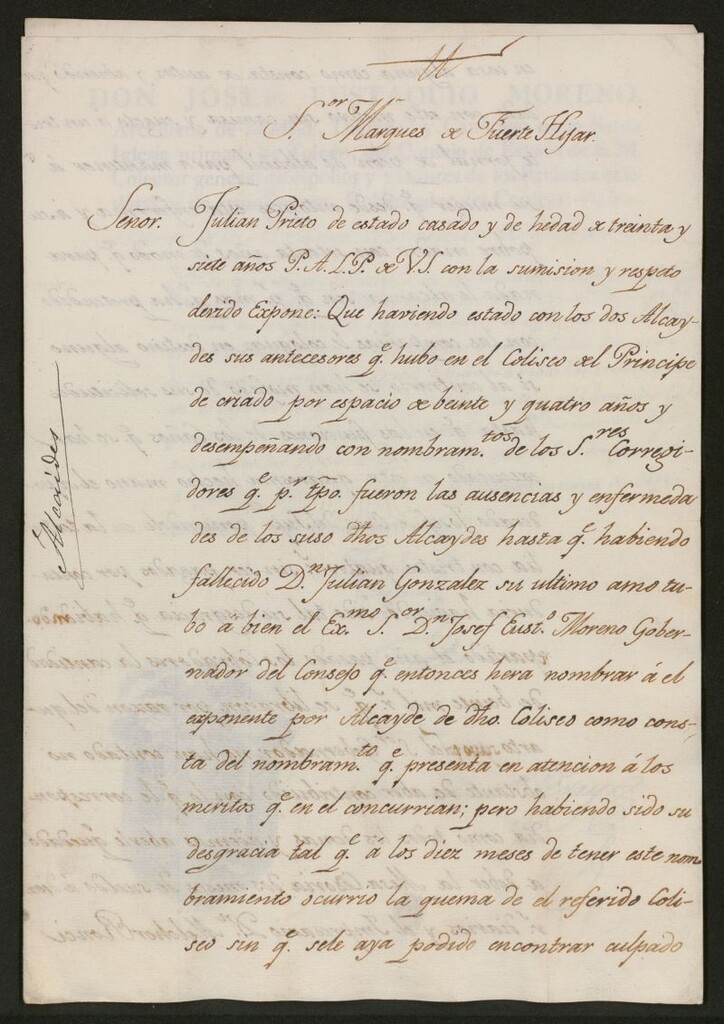 S.or Marques de Fuerte Hijar.
Señor. Julian Prieto de estado casado y de hedad de treinta y
siete años P. A. L. P. de V.S. con la sumision y respeto
devido Expone: Que haviendo estado con los dos Alcay-
des sus antecesores q.e hubo en el Coliseo del Principe
de criado por espacio de beinte y quatro años y
desempeñando con nombram.tos de los S.res Corregi-
dores q.e p.r tpo. fueron las ausencias y enfermeda
des de los suso dhos Alcaydes hasta q.e habiendo
fallecido D.n Julian Gonzalez su ultimo amo tu-
bo á bien el Ex.mo S.or D.n Josef Eust.o Moreno Gober-
nador del Consejo q.e entonces hera nombrar á el
exponente por Alcayde de dho. Coliseo como cons-
ta del nombram.to q.e presenta en atencion á los
meritos q.e en el concurrian; pero habiendo sido su
desgracia tal q.e á los diez meses de tener este nom-
bramiento ocurrio la quema de el referido Coli-
seo sin q.e sele aya podido encontrar culpado
Alcaides